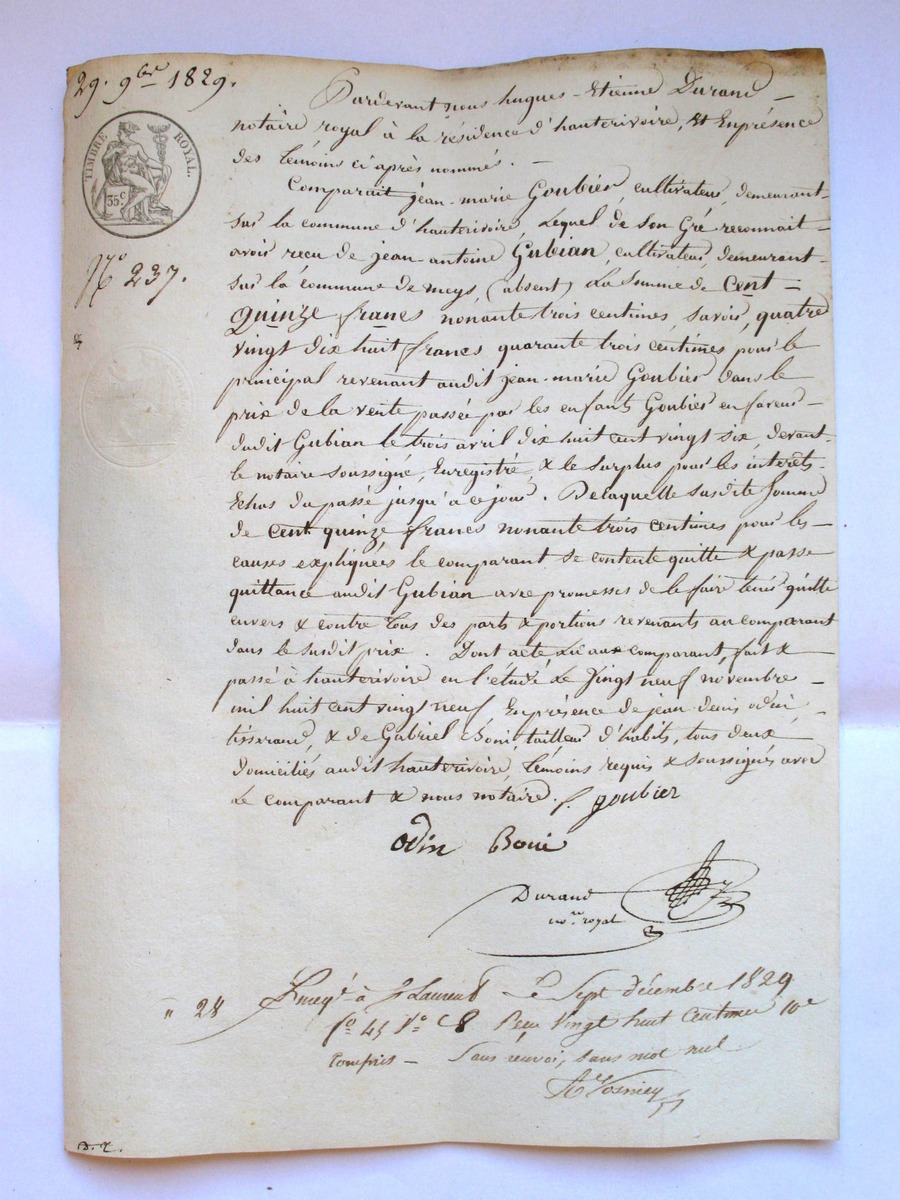 29. 9bre 1829.
TIMBRE ROYAL.
35 c
N° 237.
Pardevant nous hugues-Etienne Durand
notaire royal à la résidence d'hauterivoire, Et En présence
des témoins ci après nommés.
Comparait jean-marie Goubier, cultivateur, demeurant
sur la commune d'hauterivoire, Lequel de son Gré reconnait
avoir recu de jean-antoine Gubian, cultivateur, demeurant
sur la commune de meys, (absent) La Somme de Cent
Quinze francs nonante trois centimes, savoir, quatre
vingt dix huit francs quarante trois centimes pour le
principal revenant audit jean-marie Goubier dans le
prix de la vente passée par les enfants Goubier en faveur
dudit Gubian le trois avril dix huit cent vingt six, devant
le notaire soussigné, Enregistré, & le surplus pour les interêts
Echus du passé jusqu'à ce jour. De laquelle susdite Somme
de cent quinze francs nonante trois centimes pour les
causes expliquées le comparant se contente quitte & passe
quittance audit Gubian avec promesses de le faire tenir quitte
envers & contre tous des parts & portions revenants au comparant
dans le susdit prix. Dont acte Lu aux comparant, fait &
passé à hauterivoire en l'étude Le Vingt neuf novembre
mil huit cent vingt neuf, En présence de jean denis odin
tisserand, & de Gabriel Boni, tailleur d'habits, tous deux
domiciliés audit hauterivoire, témoins requis & soussignés avec
Le comparant & nous notaire. f. goubier
odin Boni
Durand
no.re royal
" 28 Enregé à St Laurent Le Sept décembre 1829
fo 45 Vo C 8 Reçu Vingt huit Centimes 10e
Compris - Sans renvoi, sans mot nul
D. r.